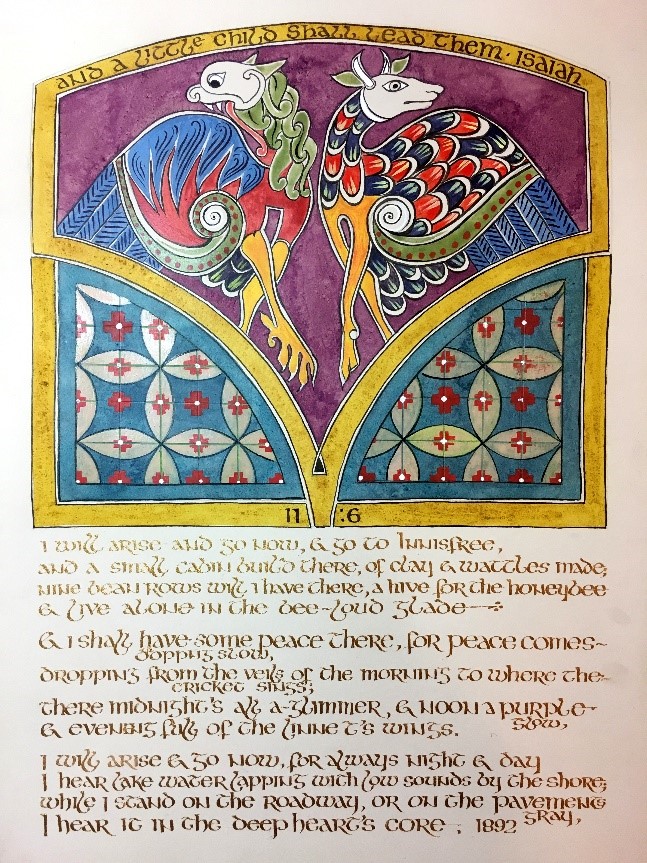 and a little child shall lead them · Isaiah
11 :6
I will arise and go now, & go to Innisfree,
and a small cabin build there, of clay & wattles made;
nine bean rows will I have there, a hive for the honeybee
& live alone in the bee-loud glade
& I shall have some peace there, for peace comes
dropping slow,
dropping from the veils of the morning to where the
cricket sings;
there midnight's all a-glimmer, & noon a purple
glow,
& evening full of the linnet's wings.
I will arise & go now, for always night & day
I hear lake water lapping with low sounds by the shore;
while I stand on the roadway, or on the pavements
gray,
I hear it in the deep heart's core . 1892